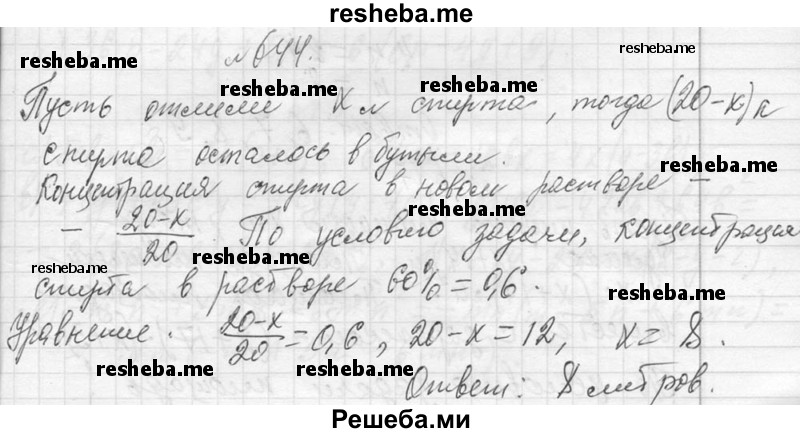 resheba.me
№644.
resheba.me
Пусть отлили x л спирта, тогда (20-x) л
resheba.me
спирта осталось в бутыли.
resheba.me
Концентрация спирта в новом растворе -
resheba.me
- 20-x/20. По условию задачи, концентрация
resheba.me
спирта в растворе 60% = 0,6.
resheba.me
Уравнение. 20-x/20 = 0,6, 20-x=12, x=8.
resheba.me
resheba.me
Ответ: 8 литров.
Решеба.ми